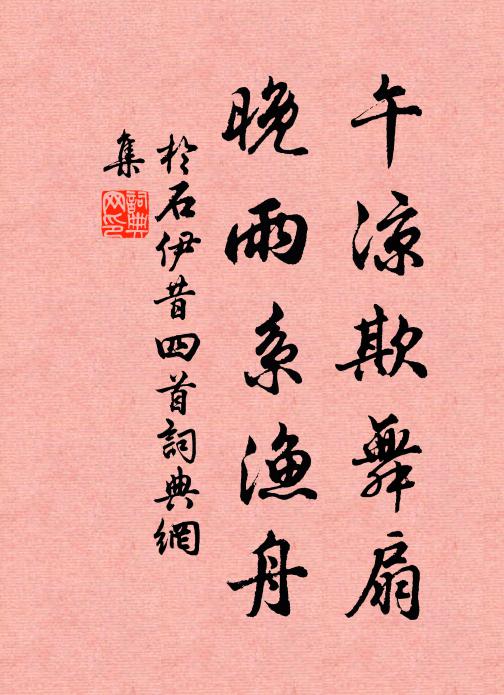 午凉欺舞扇
晚雨系漁舟
於石伊昔四首詞典網
集
詞典網印